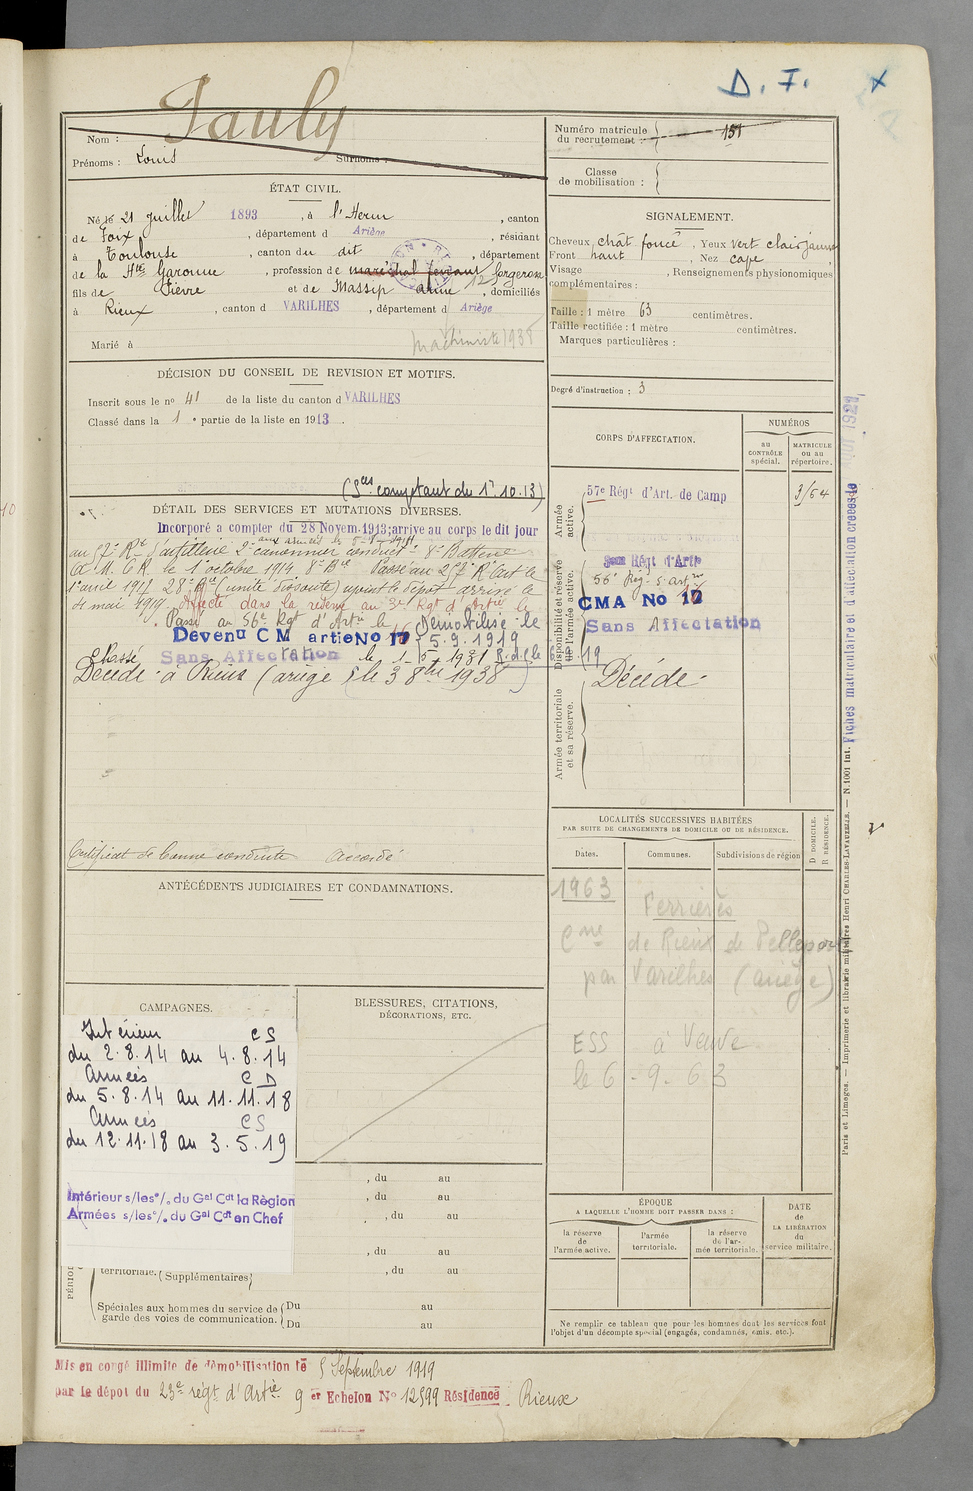 D. F. x
Pauly
Nom :
Prénoms : Louis Surnoms :
ÉTAT CIVIL.
Né le 21 juillet 1893, à l'Herm, canton
de Foix, département d Ariège, résidant
à Toulouse, canton du dit, département
de la Hte Garonne, profession de maréchal ferrant forgeron
fils de Pierre et de Massip Anne, domiciliés
à Rieux, canton d VARILHES, département d Ariège
Machiniste 1938
Marié à
DÉCISION DU CONSEIL DE REVISION ET MOTIFS.
Inscrit sous le no 41 de la liste du canton d VARILHES
Classé dans la 1e partie de la liste en 1913.
(Ses comptant du 1er 10.13)
DÉTAIL DES SERVICES ET MUTATIONS DIVERSES.
Incorporé à compter du 28 Novem. 1913; arrivé au corps le dit jour
aux armées le 5-8-1914
au 57e Rt d'artillerie 2e canonnier conduct. 8e Batterie
le 1er octobre 1914 8e Bie Passé au 23e R. d'art le
1er avril 1917 28e Bie (unité dissoute) rejoint le dépôt arrivé le
4 mai 1919. Affecté dans la réserve au 3e Rgt d'Artie le
Passé au 56e Rgt d'Artie le Démobilisé le
Devenu C M artie No 17 5.9.1919
Sans Affectation
Classé le 1-5-1931 R.d.c le 6 19
Décédé à Rieux (ariège) le 3 8bre 1938
Certificat de bonne conduite accordé
ANTÉCÉDENTS JUDICIAIRES ET CONDAMNATIONS.
CAMPAGNES.
Intérieur CS
du 2.8.14 au 4.8.14
Armées CD
du 5.8.14 au 11.11.18
Armées CS
du 12.11.18 au 3.5.19
Intérieur s/les °/. du Gal Cdt la Région
Armées s/les °/. du Gal Cdt en Chef
BLESSURES, CITATIONS,
DÉCORATIONS, ETC.
, du au
, du au
, du au
, du au
territoriale. (Supplémentaires) , du au
PÉRIOD
Spéciales aux hommes du service de Du au
garde des voies de communication. Du au
Mis en congé illimité de démobilisation le 5 Septembre 1919
par le dépot du 23e régt d'Artie 9 er Echelon No 12599 Résidence Rieux
Numéro matricule
du recrutement : 151
Classe
de mobilisation :
SIGNALEMENT.
Cheveux chât foncé, Yeux vert clair jaune
Front haut, Nez cave
Visage , Renseignements physionomiques
complémentaires :
Taille : 1 mètre 63 centimètres.
Taille rectifiée : 1 mètre centimètres.
Marques particulières :
Degré d'instruction : 3
CORPS D'AFFECTATION.
NUMÉROS
au CONTRÔLE spécial.
MATRICULE ou au répertoire.
Armée active.
57e Régt d'Art. de Camp 3154
Disponibilité et réserve de l'armée active.
Régt d'Artie
56e Rég. d'artie
CMA No 17
Sans Affectation
Armée territoriale et sa réserve.
Décédé
LOCALITÉS SUCCESSIVES HABITÉES
PAR SUITE DE CHANGEMENTS DE DOMICILE OU DE RÉSIDENCE.
Dates. Communes. Subdivisions de région
D DOMICILE.
R RÉSIDENCE.
1963 Ferrières
Cne de Rieux de Pelleport
par Varilhes (ariège)
ESS à Veuve
le 6.9.63
ÉPOQUE
A LAQUELLE L'HOMME DOIT PASSER DANS :
la réserve de l'armée active.
l'armée territoriale.
la réserve de l'armée territoriale.
DATE de LA LIBÉRATION du service militaire.
Ne remplir ce tableau que pour les hommes dont les services font
l'objet d'un décompte spécial (engagés, condamnés, omis, etc.).
Fiches matriculaire et d'affectation créées le
Paris et Limoges. — Imprimerie et librairie militaires Henri CHARLES-LAVAUZELLE. — N. 1001 Int.